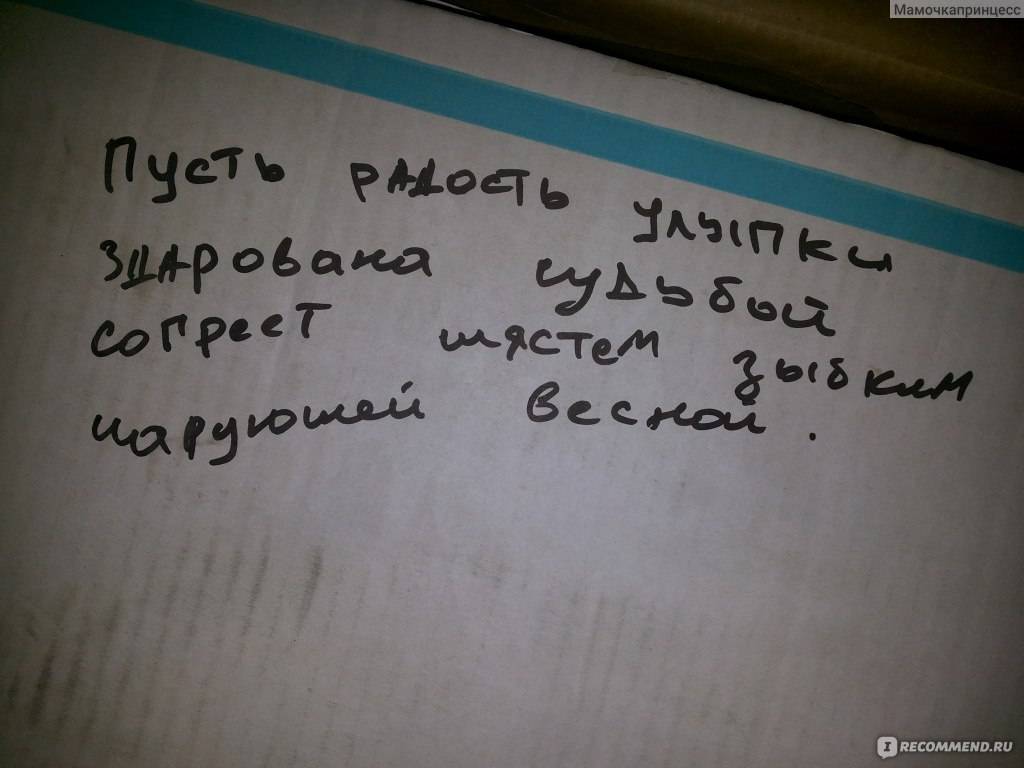 Мамочкапринцесс
Пусть радость улыпки
здарована судьбой
согреет шястем зыбким
чарующей весной.
IRECOMMEND.RU